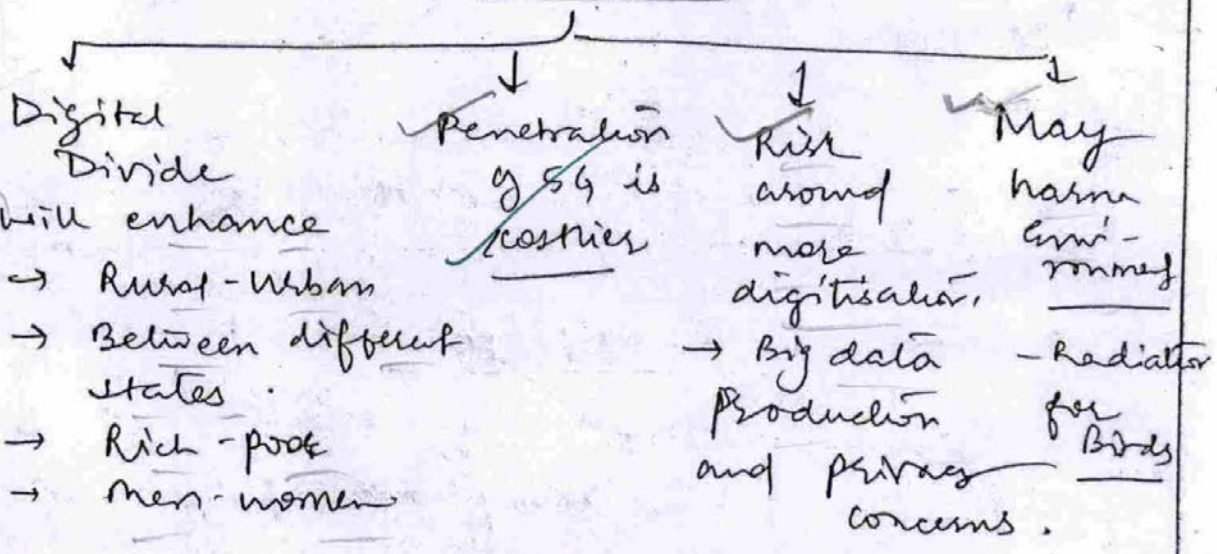 Digital
Divide
will enhance
→ Rural-Urban
→ Between different
states.
→ Rich-poor
→ Men-women
Penetration
of 5G is
costlier
Risk
around
more
digitisation.
→ Big data
production
and privacy
concerns.
May
harm
Envi-
ronment
- Radiation
for
Birds